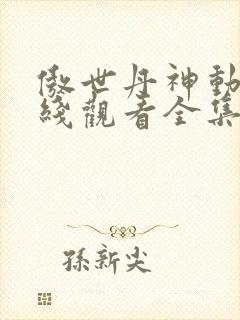 傲世丹神動
綫觀看全集
孫新尖